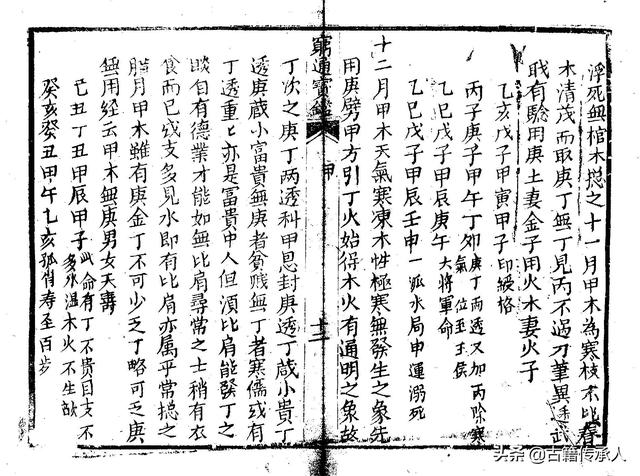 浮死無棺木捴之十一月甲木為寒枝不比春
木清茂而取庚丁無丁見丙不過刀筆異途武
戝有驗用庚土妻金子用火木妻火子
乙亥戊子甲寅甲子印綬格
丙子庚子甲午丁卯庚丁兩透又加丙除寒氣位至王侯
乙巳戊子甲辰庚午大將軍命
乙巳戊子甲辰壬申一派水局申運溺死
十二月甲木天氣寒凍木性極寒無發生之象先
用庚劈甲方引丁火始得木火有通明之象故
窮通寳鑑
甲
十二
丁次之庚丁兩透科甲恩封庚透丁蔵小貴丁
透庚蔵小富貴無庚者貧賤無丁者寒儒或有
丁透重匕亦是富貴中人但湏比肩能發丁之
燄自有德業才能如無比肩尋常之士稍有衣
食而已或支多見水即有比肩亦属平常捴之
腊月甲木雖有庚金丁不可少乏丁略可乏庚
無用経云甲木無庚男女夭壽
己丑丁丑甲辰甲子此命有丁不貴因支不多水温木火不生
癸亥癸丑甲午乙亥孤肖寿至百步
头条@古籍传承人